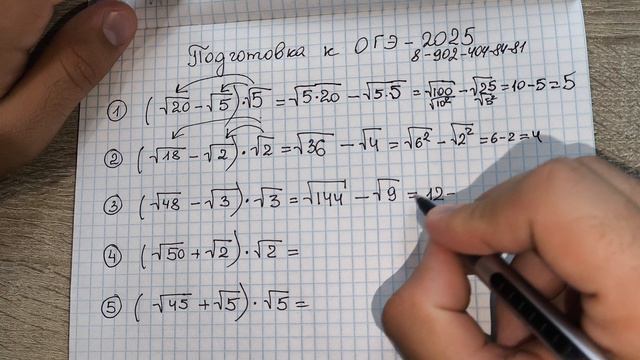 Подготовка к ОГЭ-2025
8-902-404-84-81
① (√20 - √5) · √5 = √5·20 - √5·5 = √100 - √25 = 10-5 = 5
√10² √5²
② (√18 - √2) · √2 = √36 - √4 = √6² - √2² = 6-2 = 4
③ (√48 - √3) · √3 = √144 - √9 = 12 -
④ (√50 + √2) · √2 =
⑤ (√45 + √5) · √5 =